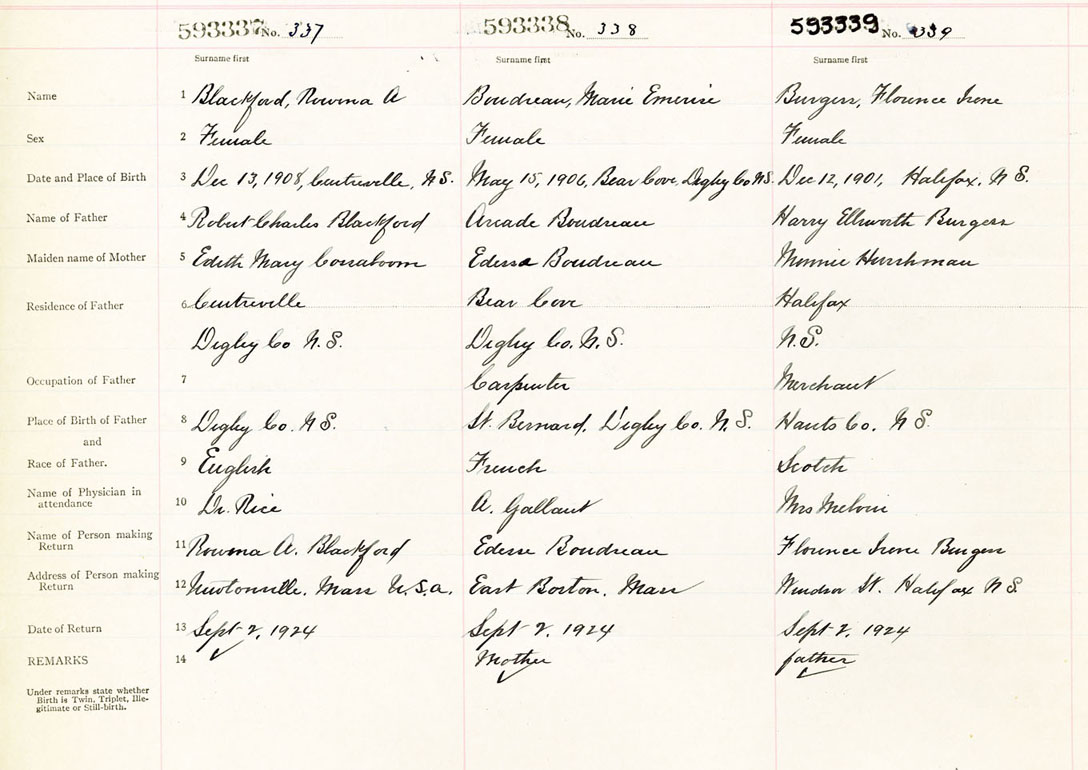 593337 No. 337 593338 No. 338 593339 No. 339
Surname first Surname first Surname first
Name 1 Blackford, Rowena A Boudreau, Marie Emerise Burgess, Florence Irene
Sex 2 Female Female Female
Date and Place of Birth 3 Dec 13, 1908, Centreville, N S. May 15, 1906, Bear Cove, Digby Co N.S. Dec 12, 1901, Halifax, N S.
Name of Father 4 Robert Charles Blackford Arcade Boudreau Harry Ellsworth Burgess
Maiden name of Mother 5 Edith Mary Cossaboom Edesse Boudreau Minnie Hirschman
Residence of Father 6 Centreville Bear Cove Halifax
Digby Co N. S. Digby Co. N. S. N. S.
Occupation of Father 7 Carpenter Merchant
Place of Birth of Father 8 Digby Co. N S. St. Bernard, Digby Co. N. S. Hants Co. N S.
and
Race of Father. 9 English French Scotch
Name of Physician in
attendance 10 Dr. Rice A. Gallant Mrs Melvin
Name of Person making
Return 11 Rowena A. Blackford Edesse Boudreau Florence Irene Burgess
Address of Person making
Return 12 Newtonville, Mass U.S.A. East Boston, Mass Windsor St. Halifax N S.
Date of Return 13 Sept 2, 1924 Sept 2, 1924 Sept 2, 1924
REMARKS 14 Mother father
Under remarks state whether
Birth is Twin, Triplet, Ille-
gitimate or Still-birth.